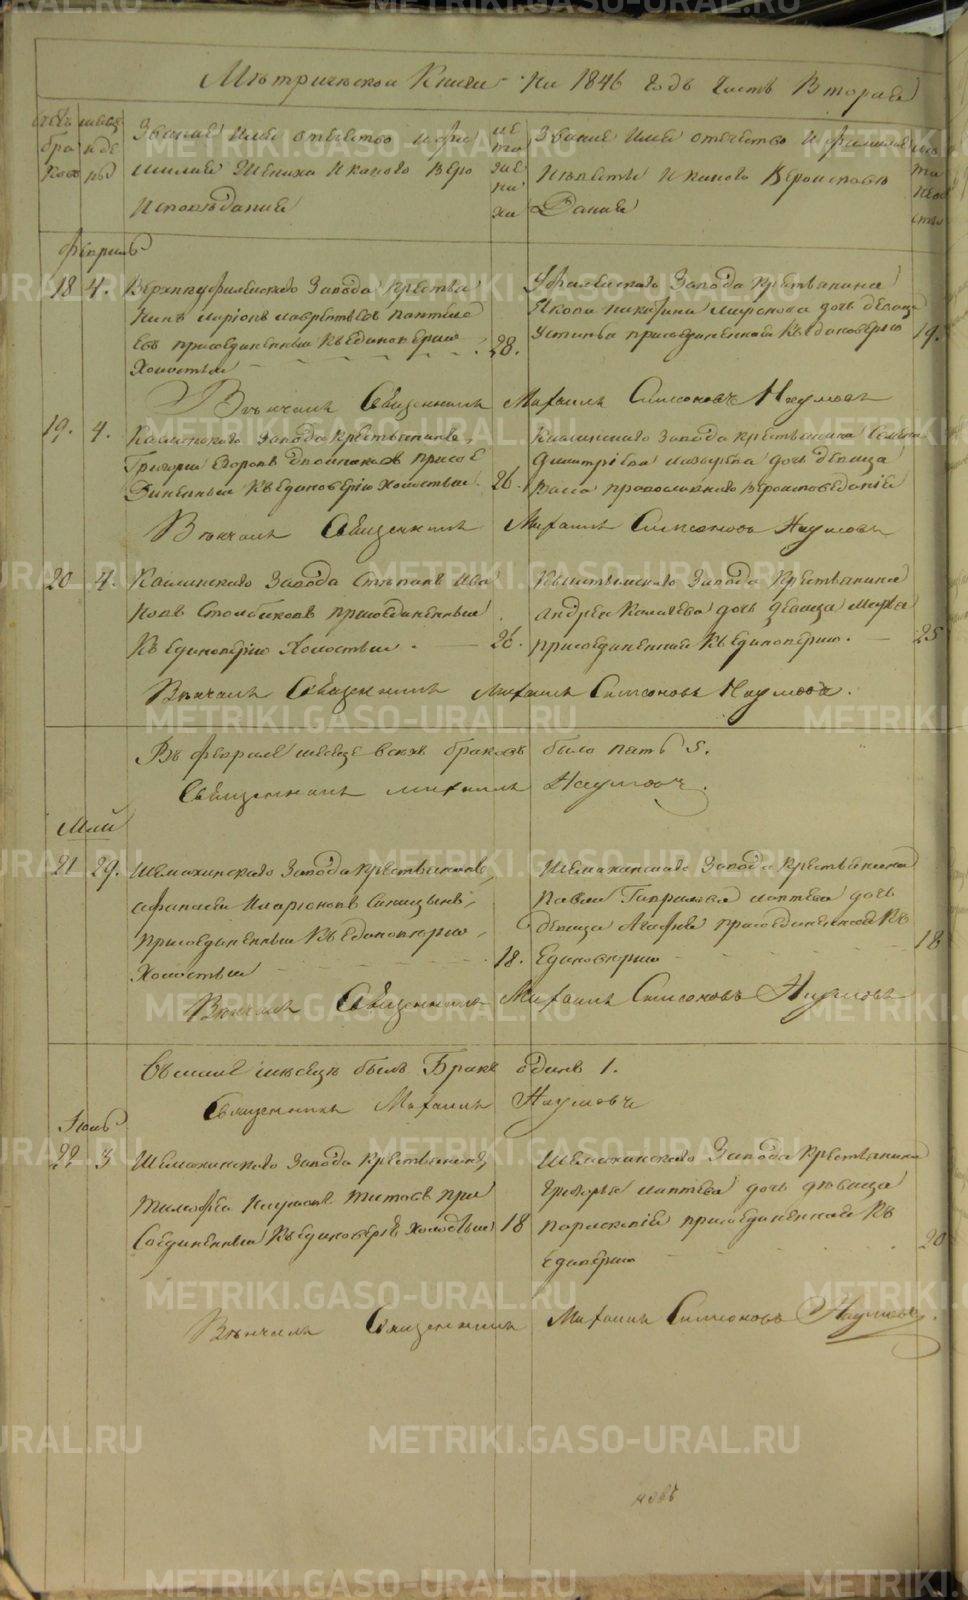 Метрической Книги на 1846 годъ Часть Вторая
Звание имя отечество и фа
милия Жениха и какого веро
исповедания
Звание имя отечество и фамилия
Невесты и какого вероиспове
дания
Февраль
18 4. Верхнеуфалейскаго Завода крестья
нинъ Ларионъ Лаврентьевъ Пантеле
евъ присоединенный къ единоверию
Холостый 28.
Уфалейскаго Завода крестьянина
Якова дочь девица
Устинья присоединенная къ единоверию 19.
Венчалъ Священникъ Михаилъ Симеоновъ Наумовъ
19. 4. Каслинскаго Завода крестьянинъ
Григорий Егоровъ присое
диненный къ единоверию Холостый 26.
Каслинскаго Завода крестьянина Семена
Димитриева дочь девица
Васса православнаго вероисповедания
Венчалъ Священникъ Михаилъ Симеоновъ Наумовъ
20 4. Каслинскаго Завода Степанъ Ива
новъ Столбиковъ присоединенный
къ единоверию Холостый 26.
Кыштымскаго Завода крестьянина
Андрея дочь девица Марфа
присоединенная къ единоверию 25
Венчалъ Священникъ Михаилъ Симеоновъ Наумовъ.
Въ феврале месяце всехъ браковъ было пять 5.
Священникъ Михаилъ Наумовъ.
Май
21 29. Шемахинскаго Завода крестьянинъ
Афанасей Иларионовъ Синицынъ
присоединенный къ единоверию
Холостый 18.
Шемахинскаго Завода крестьянина
Павла Гаврилова Лаптева дочь
девица Агафья присоединенная къ
единоверию 18
Венчалъ Священникъ Михаилъ Симеоновъ Наумовъ
Въ мае месяце былъ Бракъ одинъ 1.
Священникъ Михаилъ Наумовъ
22 3 Шемахинскаго Завода крестьянинъ
Тимофей Наумовъ Титовъ при
соединенный къ единоверие Холостый 18
Шемахинскаго Завода крестьянина
Григорья Лаптева дочь девица
Парасковия присоединенная къ
единверию 20
Венчалъ Священникъ Михаилъ Симеоновъ Наумовъ.
METRIKI.GASO-URAL.RU